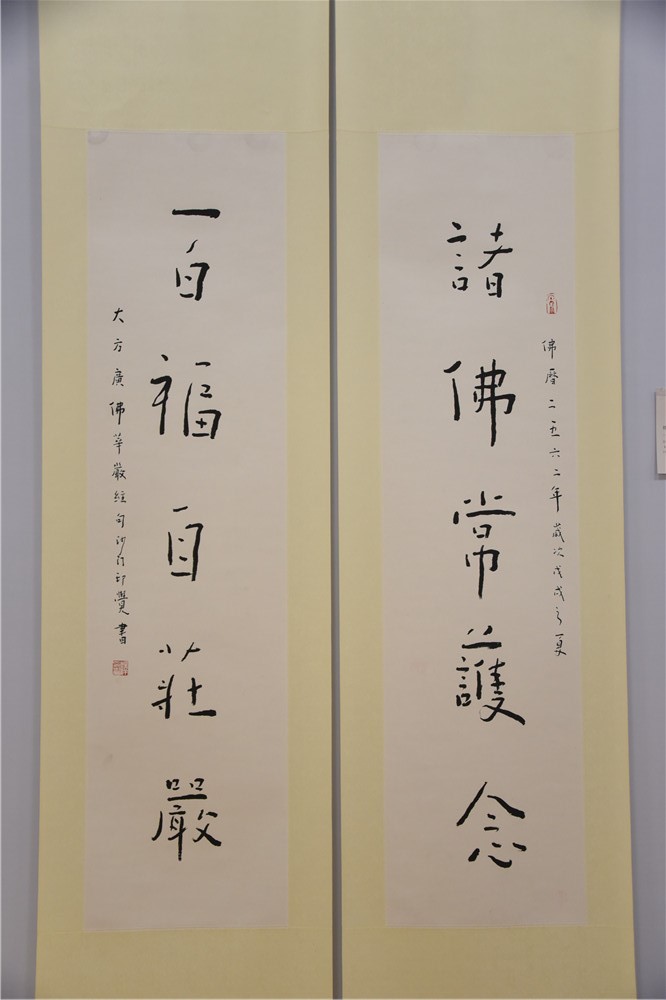 佛曆二五六二年歲次戊戌之夏
諸佛常護念
百福自莊嚴
大方廣佛華嚴經句沙門印覺書